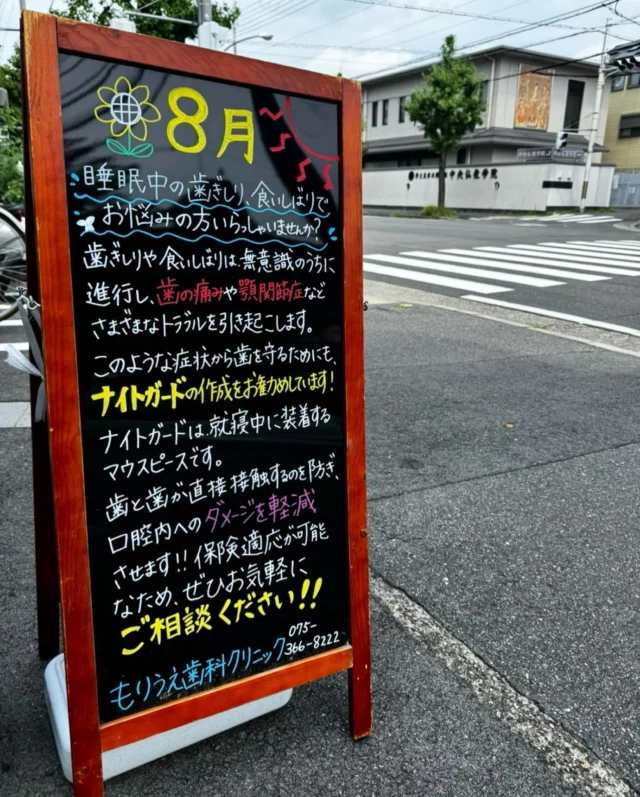 8月
睡眠中の歯ぎしり、食いしばりで
お悩みの方いらっしゃいませんか?
歯ぎしりや食いしばりは、無意識のうちに
進行し、歯の痛みや顎関節症など
さまざまなトラブルを引き起こします。
このような症状から歯を守るためにも、
ナイトガードの作成をお勧めしています!
ナイトガードは、就寝中に装着する
マウスピースです。
歯と歯が直接接触するのを防ぎ、
口腔内へのダメージを軽減
させます!!保険適応が可能
なため、ぜひお気軽に
ご相談ください!!
もりうえ歯科クリニック075-
366-8222
中央仏教学院